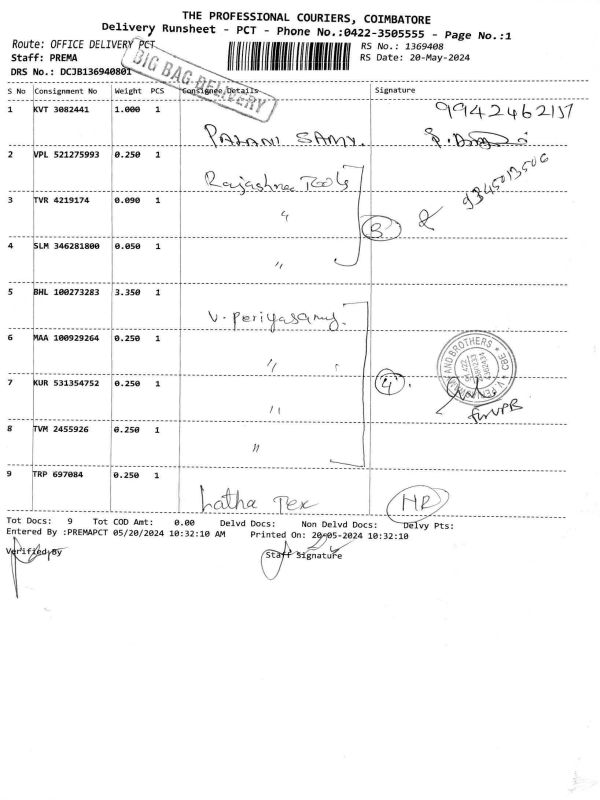 THE PROFESSIONAL COURIERS, COIMBATORE
Delivery Runsheet - PCT - Phone No.:0422-3505555 - Page No.:1
Route: OFFICE DELIVERY PCT
RS No.: 1369408
Staff: PREMA
RS Date: 20-May-2024
DRS No.: DCJB136940801
BIG BAG DELIVERY
S No Consignment No Weight PCS Consignee Details Signature
1 KVT 3082441 1.000 1
PALANI SAMY.
2 VPL 521275993 0.250 1
Rajashree Tools
9345013506
3 TVR 4219174 0.090 1
"
3
4 SLM 346281800 0.050 1
"
5 BHL 100273283 3.350 1
V. Periyasamy.
6 MAA 100929264 0.250 1
"
AND BROTHERS * CBE *
7 KUR 531354752 0.250 1
4.
"
for VPB
8 TVM 2455926 0.250 1
"
9 TRP 697084 0.250 1
Latha Tex
Tot Docs: 9 Tot COD Amt: 0.00 Delvd Docs: Non Delvd Docs: Delvy Pts:
Entered By :PREMAPCT 05/20/2024 10:32:10 AM Printed On: 20-05-2024 10:32:10
Verified By Staff Signature